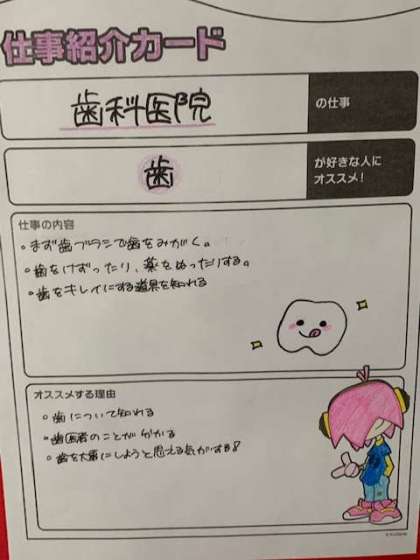 仕事紹介カード
歯科医院
の仕事
歯
が好きな人に
オススメ!
仕事の内容
・まず歯ブラシで歯をみがく。
・歯をけずったり、薬をぬったりする。
・歯をキレイにする道具を知れる
オススメする理由
・歯について知れる
・歯医者のことが分かる
・歯を大事にしようと思える気がする!